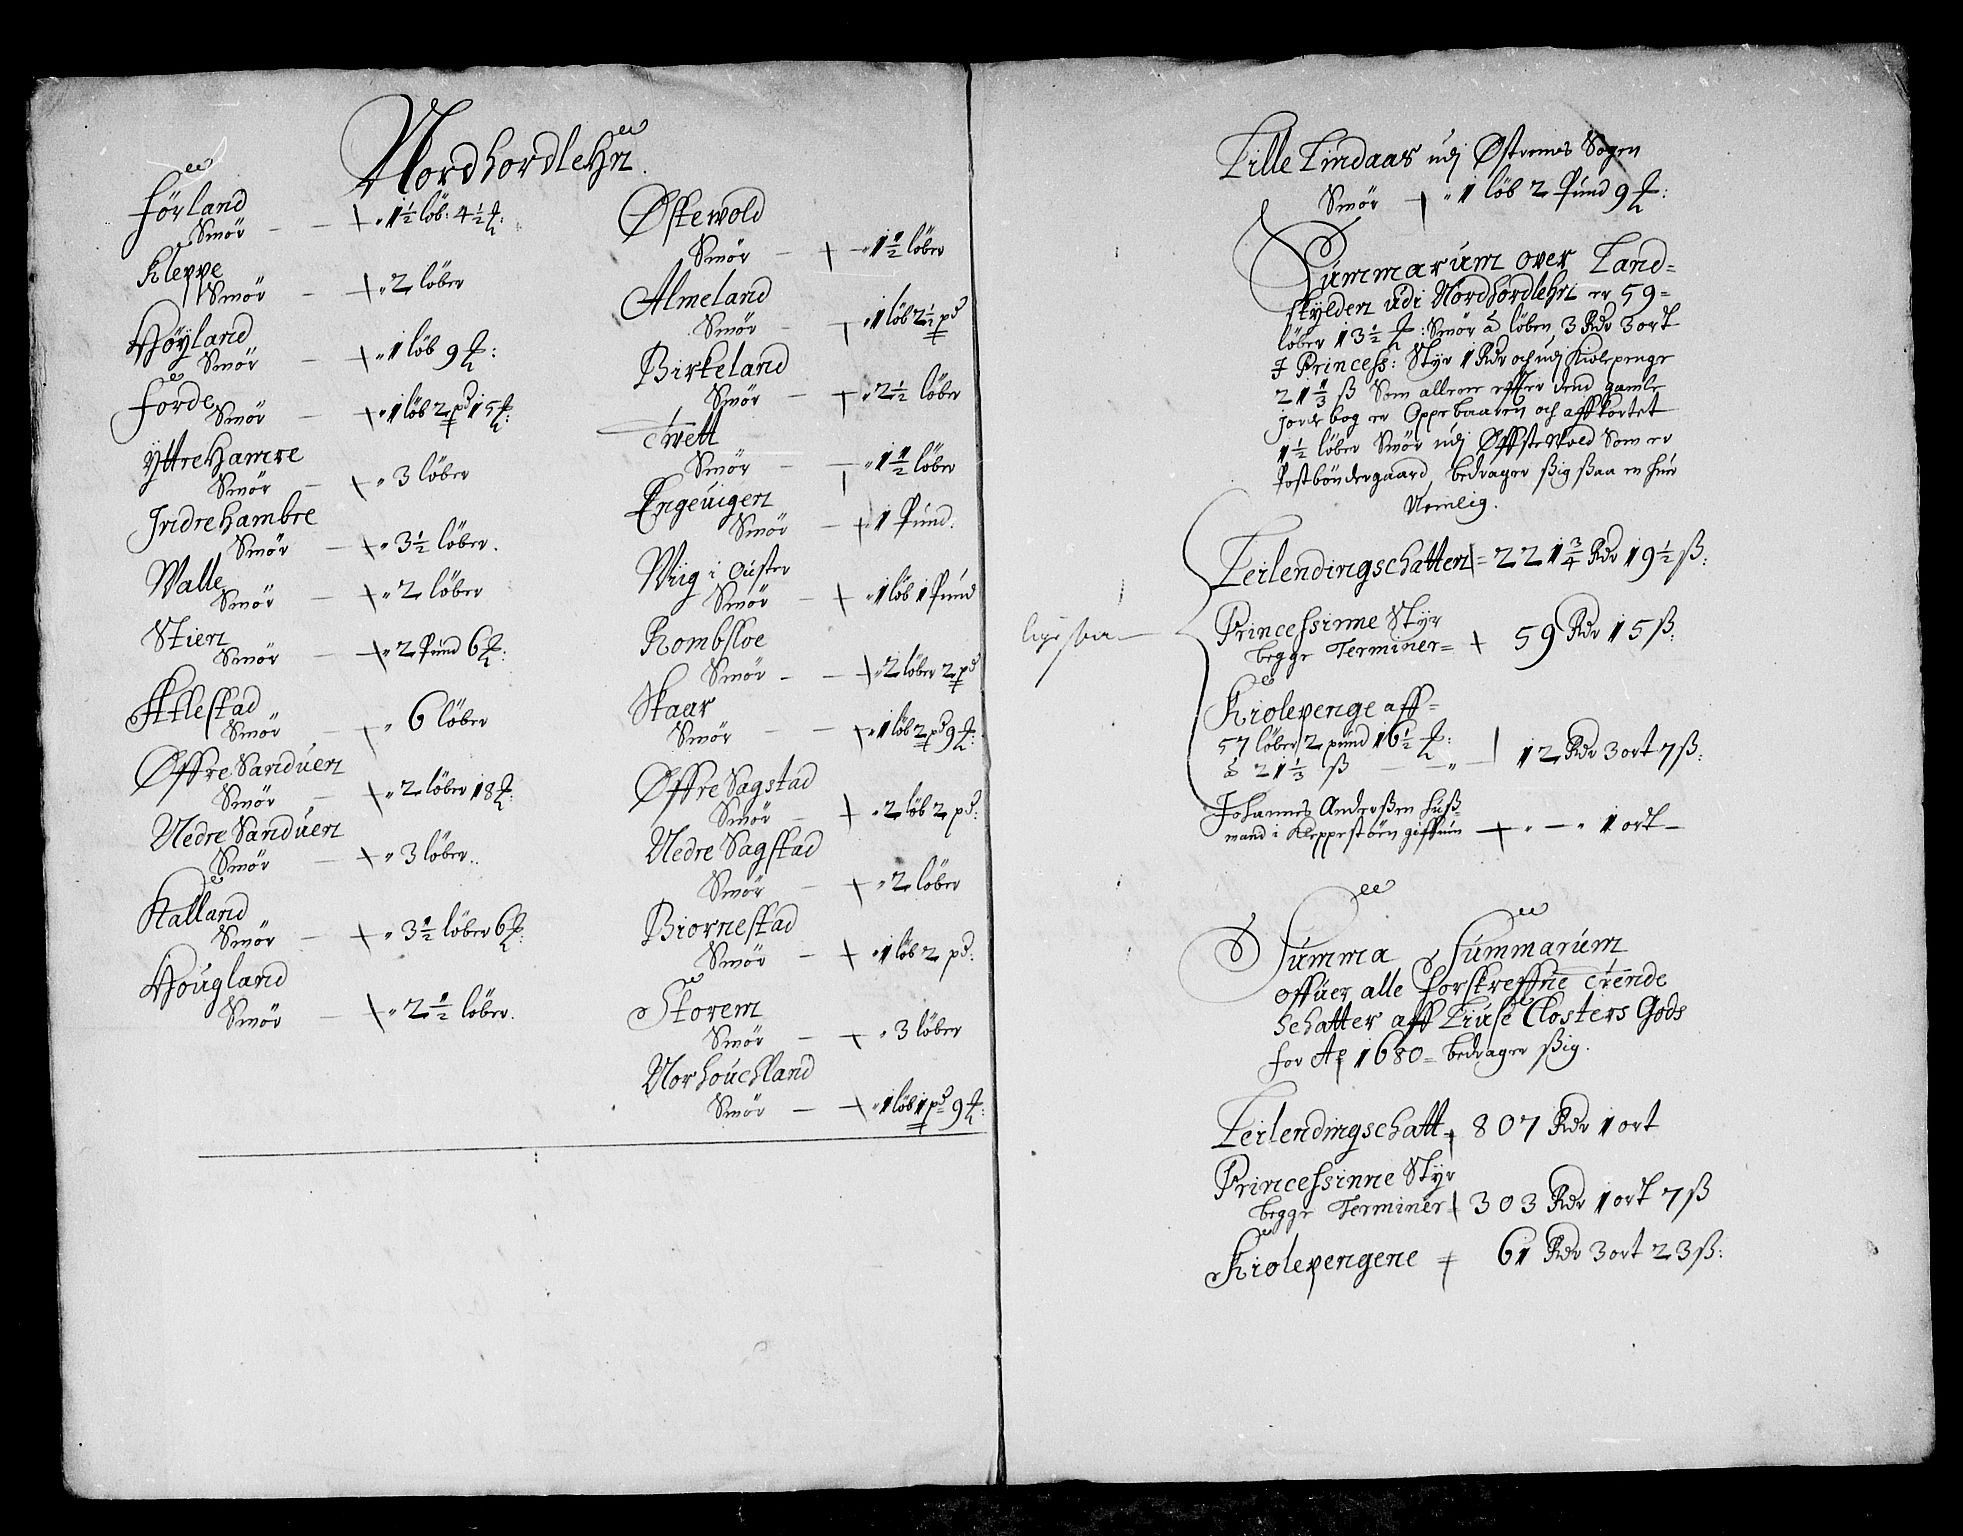 Nordhordlehn.
Förland
Smör — — + „ 1½ löb: 4½ ℔:
Kleppe
Smör — + „ 2 löber
Höyland
Smör — + „ 1 löb 9 ℔:
Förde
Smör — + „ 1 löb 2 pd 15 ℔:
Yttre Hamre
Smör — + „ 3 löber
Indre hambre
Smör — + „ 3½ löber.
Walle
Smör — + „ 2 löber
Stien
Smör — + „ 2 Pund 6 ℔:
Atlestad
Smör — + „ 6 löber
Øffre Sanduen
Smör — + „ 2 löber 18 ℔:
Nedre Sanduen
Smör — + „ 3 löber.
Kalland
Smör — + „ 3½ löber 6 ℔:
Hougland
Smör — + „ 2½ löber.
Østewold
Smör — + „ 1½ löber
Almeland
Smör — + „ 1 löb 2½ pd
Birkeland
Smör — + „ 2½ löber
Twett
Smör — + „ 1½ löber
Engeuigen
Smör — + „ 1 Pund.
Wiig i Ouster
Smör — + „ 1 löb 1 Pund
Rombsloe
Smör — — + „ 2 löber 2 pd
Skaar
Smör — — + „ 1 löb 2 pd 9 ℔:
Øffre Sagstad
Smör — + „ 2 löb 2 pd:
Nedre Sagstad
Smör — + „ 2 löber
Biornestad
Smör — + „ 1 löb 2 pd:
Storem
Smör — + „ 3 löber
Norhouchland
Smör — + „ 1 löb 1 pd 9 ℔:
Lille Lindaas udj Østrems Sogen
Smör — + „ 1 löb 2 Pund 9 ℔:
Summarum over Land=
skylden udi Nordhordlehn er 59=
löber 13½ ℔: Smör â löben 3 Rdr 3 ort
I Princess: Styr 1 Rdr och udj Kiolepenge
21⅓ ß Som allene effter dend gamle
jordebog er Oppebaaren och affkortet
1½ löber Smör udj Øffstewold Som er
Postböndergaard, bedrager ßig ßaa en huer
Nemlig.
Leilendingschatten = 221¾ Rdr 19½ ß:
ligesaa —
Princessinne Styr
begge Terminer = + 59 Rdr 15 ß:
Kiolepenge aff=
57 löber 2 pund 16½ ℔:
â 21⅓ ß — — „ — 12 Rdr 3 ort 7 ß:
Johannes Anderßen huß
mand i Kleppestöen giffuin + „ — „ 1 ort —
Summa Summarum
offuer alle forskreffne Trende
Schatter aff Liuse Closters Gods
for Ao 1680 = bedrager ßig.
Leilendingschatt + 807 Rdr 1 ort
Princessinne Styr
begge Terminer + 303 Rdr 1 ort 7 ß
Kiolepengene + 61 Rdr 3 ort 23 ß: